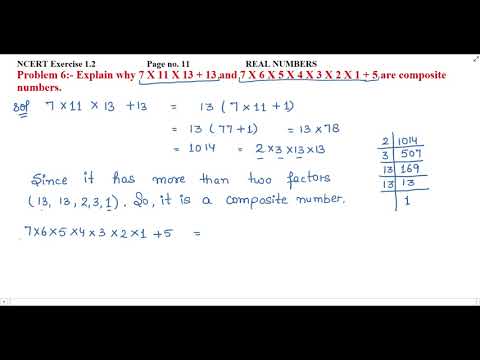 NCERT Exercise 1.2 Page no. 11 REAL NUMBERS
Problem 6:- Explain why 7 X 11 X 13 + 13 and 7 X 6 X 5 X 4 X 3 X 2 X 1 + 5 are composite
numbers.
Sol 7 × 11 × 13 + 13 = 13 ( 7 × 11 + 1 )
= 13 ( 77 + 1 ) = 13 × 78
= 1014 = 2 × 3 × 13 × 13
2 | 1014
3 | 507
13 | 169
13 | 13
| 1
Since it has more than two factors
( 13, 13, 2, 3, 1 ). So, it is a composite number.
7×6×5×4×3×2×1 + 5 =